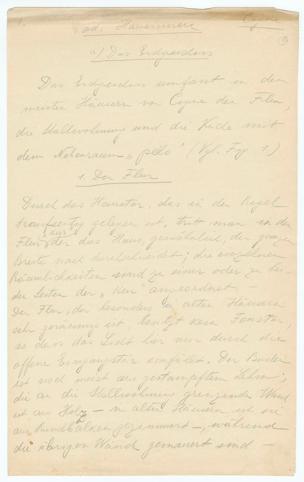 1.
Cogne
a) Das Erdgeschoss
Das Erdgeschoss umfasst in den
meisten Häusern von Cogne den Flur,
die Stallwohnung und die Küche mit
dem Nebenraum „ " (Vgl. Fig. 1)
1. Der Flur
Durch das Haustor, das in der Regel
traufseitig gelegen ist, tritt man in den
Flur, der das Haus, gewöhnlich der ganzen
Breite nach durchschneidet; die einzelnen
Räumlichkeiten sind zu einer oder zu bei-
den Seiten der „ " angeordnet. —
Der Flur, der besonders in alten Häusern
sehr geräumig ist, besitzt kein Fenster,
so dass das Licht hier nur durch die
offene Eingangstür einfällt. Der Boden
ist noch meist aus gestampftem Lehm;
die an die Stallwohnung grenzende Wand
ist aus Holz — in alten Häusern ist sie
aus Rundbalken gezimmert —, während
die übrigen Wände gemauert sind —